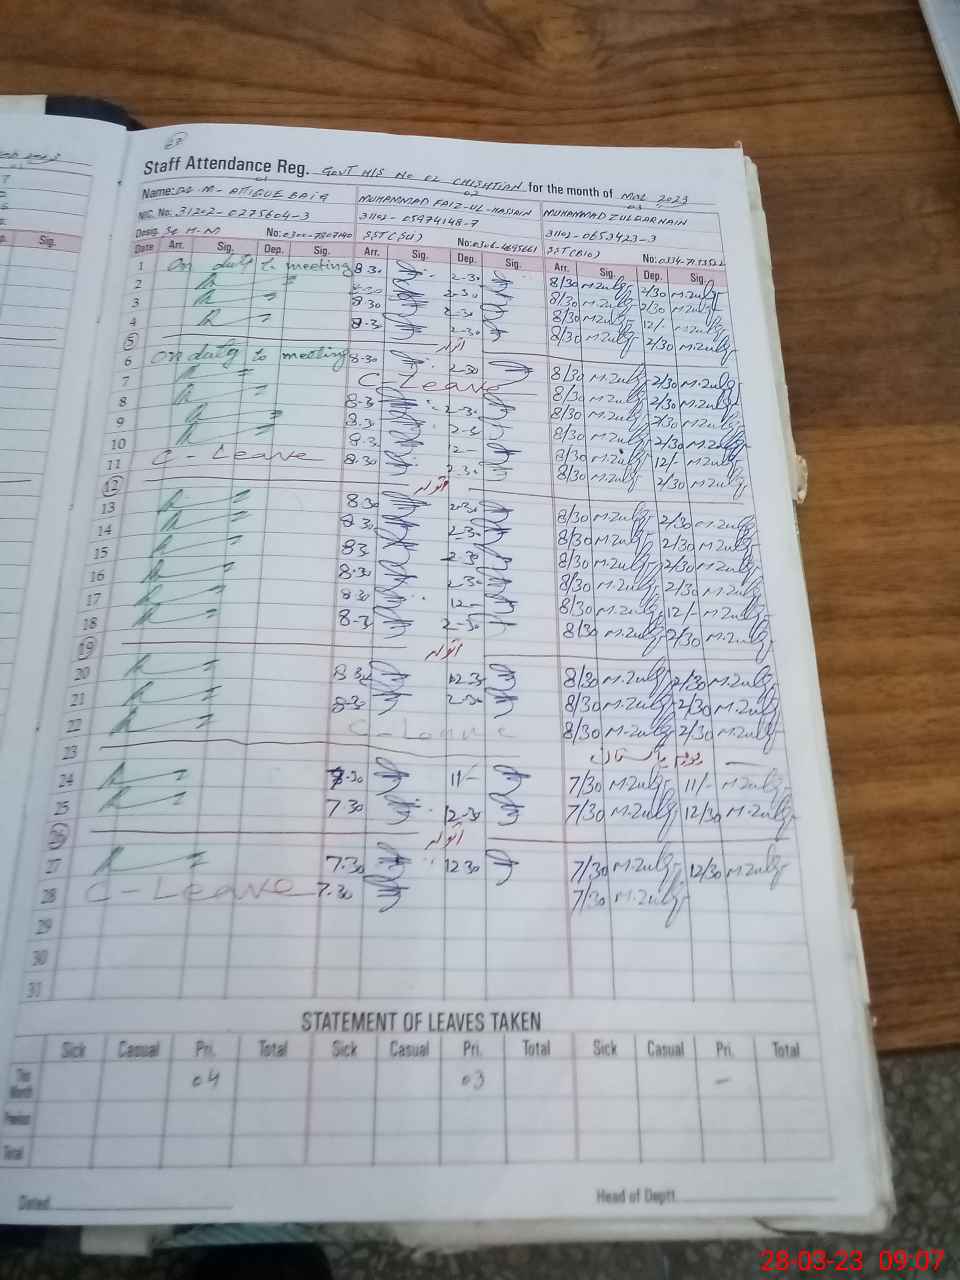 Staff Attendance Reg. GOVT H/S No 02 CHISHTIAN for the month of MAR 2023
01 02 03
Name: M. ATIQUE BAIG MUHAMMAD FAIZ-UL-HASSAIN MUHAMMAD ZULQARNAIN
NIC. No. 31202-0275604-3 31102-05974148-7 31102-0653423-3
Desig. Sr H-M No: 0300-7807140 SST(Sci) No: 0306-4695661 SST(BIO) No: 0334-
Date Arr. Sig. Dep. Sig. Arr. Sig. Dep. Sig. Arr. Sig. Dep. Sig.
1 On duty to meeting 8.30 2-30 8/30 M.Zulg 2/30 M.Zulg
2 2-30 8/30 M.Zulg 2/30 M.Zulg
3 8.30 2-30 8/30 M.Zulg 12/- M.Zulg
4 8.3 2-30 8/30 M.Zulg 2/30 M.Zulg
5 اتوار
6 On duty to meeting 8.30 2-30 8/30 M.Zulg 2/30 M.Zulg
7 C-Leave 8/30 M.Zulg 2/30 M.Zulg
8 8.3 2-3 8/30 M.Zulg 2/30 M.Zulg
9 8.3 2-3 8/30 M.Zulg 2/30 M.Zulg
10 8.3 12- 8/30 M.Zulg 12/- M.Zulg
11 C-Leave 8.30 2.30 8/30 M.Zulg 2/30 M.Zulg
12 اتوار
13 8.30 2.30 8/30 M.Zulg 2/30 M.Zulg
14 8.30 2-30 8/30 M.Zulg 2/30 M.Zulg
15 83 2-30 8/30 M.Zulg 2/30 M.Zulg
16 8.30 2-30 8/30 M.Zulg 2/30 M.Zulg
17 830 12- 8/30 M.Zulg 12/- M.Zulg
18 8.3 2-30 8/30 M.Zulg 2/30 M.Zulg
19 اتوار
20 8 30 2.3 8/30 M.Zulg 2/30 M.Zulg
21 8.30 2-30 8/30 M.Zulg 2/30 M.Zulg
22 C-Leave 8/30 M.Zulg 2/30 M.Zulg
23 یوم پاکستان
24 7.30 11/- 7/30 M.Zulg 11/- M.Zulg
25 7.30 12-30 7/30 M.Zulg 12/30 M.Zulg
26 اتوار
27 7.30 12.30 7/30 M.Zulg 12/30 M.Zulg
28 C-Leave 7.30 7/30 M.Zulg
29
30
31
STATEMENT OF LEAVES TAKEN
Sick Casual Pri. Total Sick Casual Pri. Total Sick Casual Pri. Total
This Month 04 03 -
Previous
Total
Dated Head of Deptt.
28-03-23 09:07